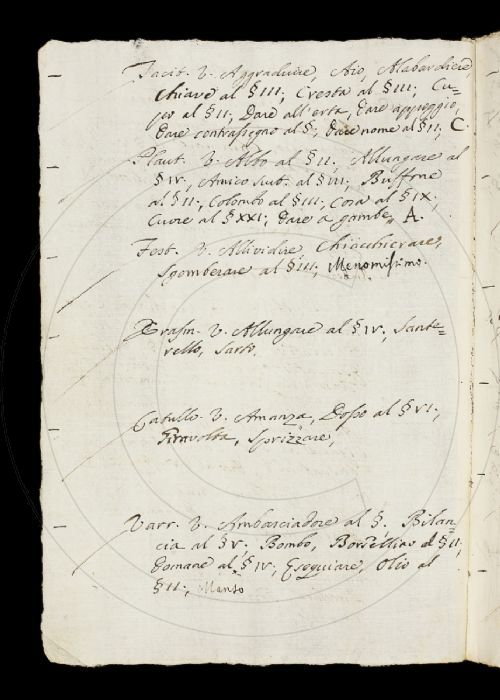 Tacit. V. Aggraduire, Aio, Alabardiere,
Chiave al § III; Cresta al § III; Cu=
po al § II; Dare all'erta, Dare appoggio,
Dare contrasegno al §; Dare nome al § II; C.
Plaut. V. Albo al § II; Allungare al
§ IV, Amico sust. al § III; Buffone
al § II; Colombo al § III; Cosa al § IX;
Cuore al § XXI; Dare a gambe, A.
Fest. V. Allividire, Chiacchierare,
Sgomberare al § III; Menomissimo.
Erasm. V. Allungare al § IV; Sante=
rello, Sarto,
Catullo. V. Amanza, Dopo al § VI;
Giravolta, Sprizzare,
Varr. V. Ambasciadore al §. Bilan=
cia al § V; Bombo, Borsellino al § II;
Domane al § IV; Eseguiare, Olio al
§ II;